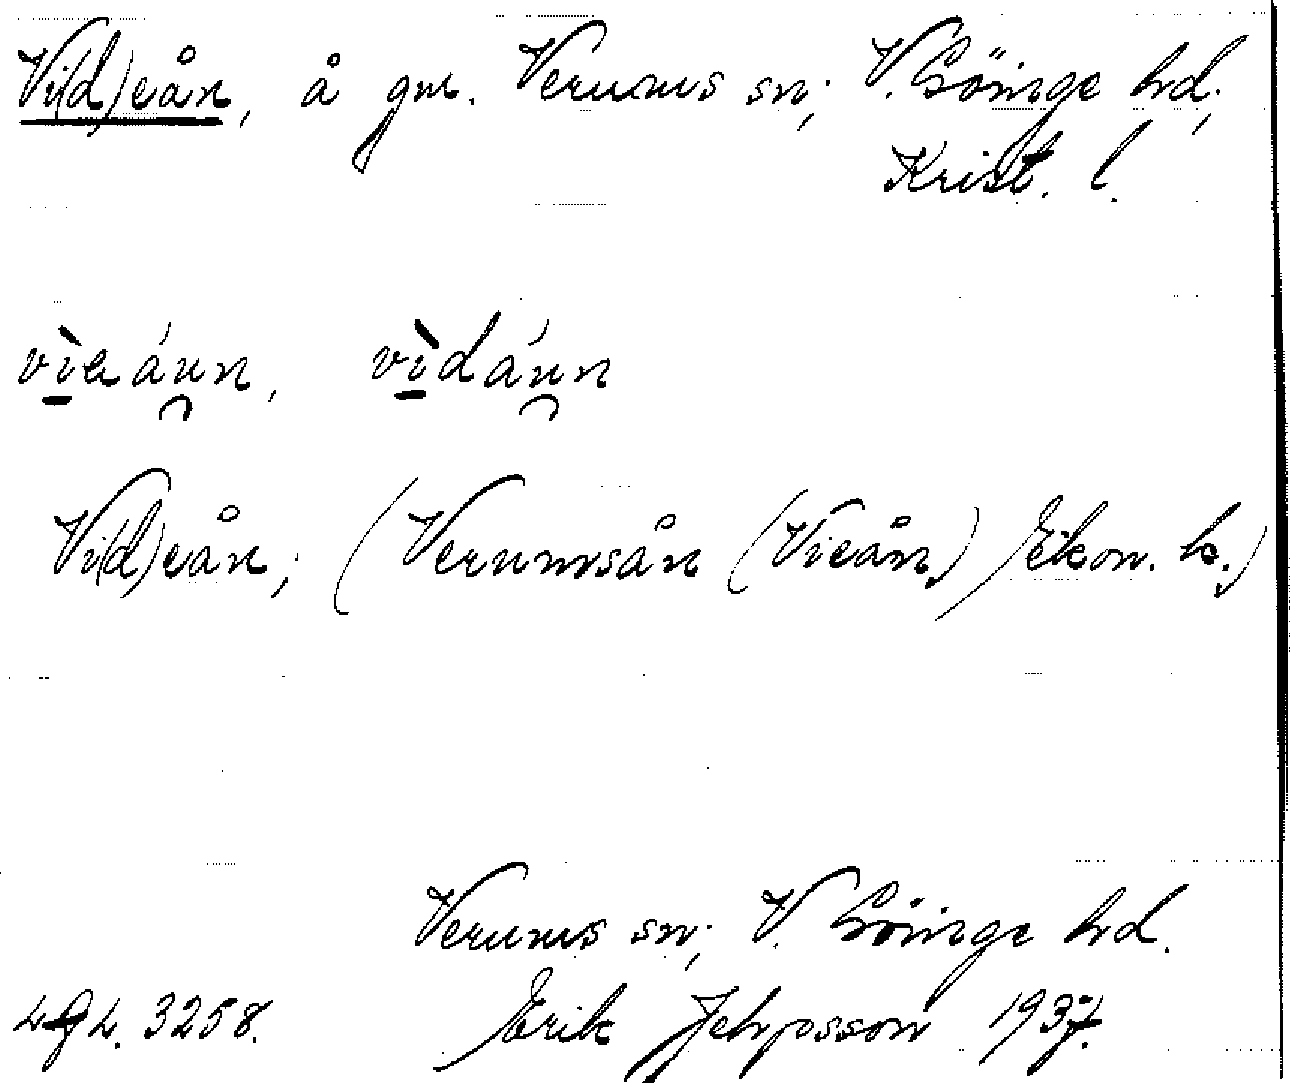 Vi(d)eån, å gm. Verums sn; V. Göinge hd;
Krist. l.
vìeánn, vìdánn
Vi(d)eån; (Verumsån (Vieån) Ekon. k.)
Verums sn; V. Göinge hd.
3258. Erik Jeppsson 1937.